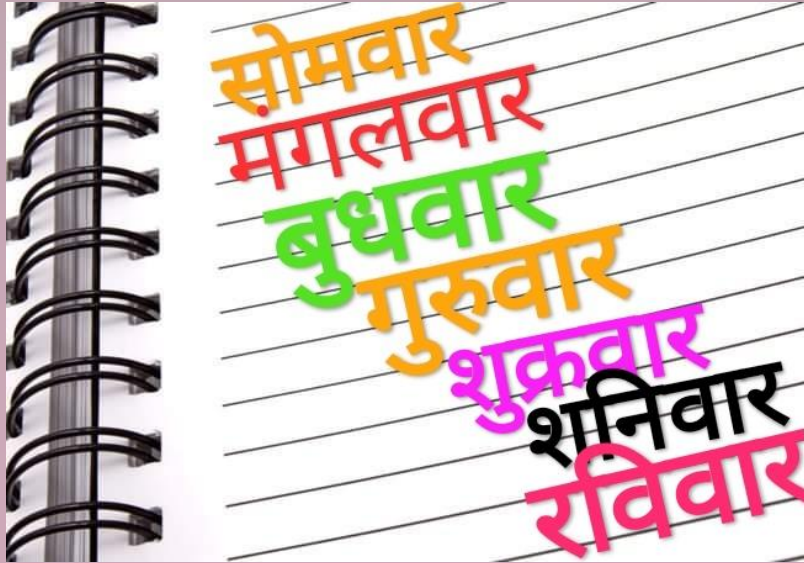 सोमवार
मंगलवार
बुधवार
गुरुवार
शुक्रवार
शनिवार
रविवार